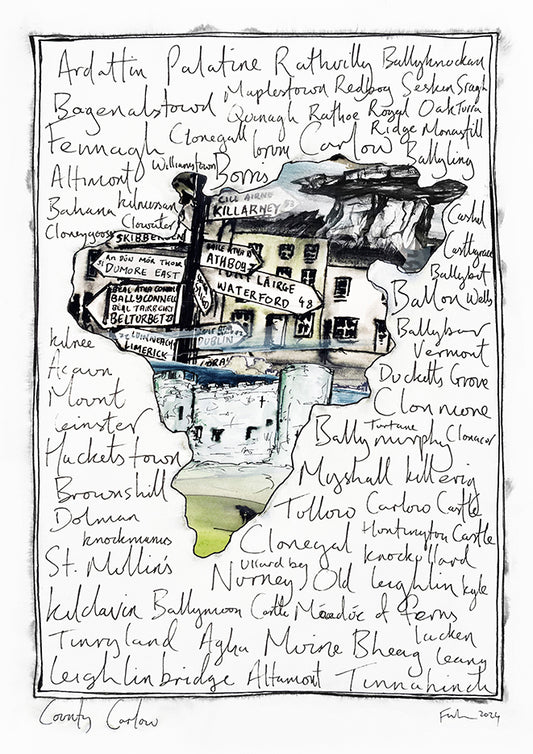 Ardattin Palatine Rathvilly Ballyknockan
Bagenalstown Maplestown Redbog Seskin Sragh
Quinagh Rathoe Royal Oak Turra
Fennagh Clonegall Carlow Ridge Monastill
Altimont Williamstown Borris Ballyling
Bahana Kilnersan
Clonegoose Clowater
Cashel
Castlegrace
Ballybit
Ballon Wells
Ballybar
Vermont
Ducketts Grove
Clonmore
Turtane
Ballymurphy Clonacor
CILL AIRNE
KILLARNEY 53
SKIBBEREEN
ATHBOY
AN DÚN MÓR THOIR
DUMORE EAST
PORT LÁIRGE
WATERFORD 48
BÉAL ÁTHA CONAILL
BALLYCONNELL
BÉAL TAIRBIRT
BELTURBET
LUIMNEACH
LIMERICK
DUBLIN
BRAY
Kilnee
Acaun
Mount
Leinster
Hacketstown
Brownshill
Dolman
Knockmanus
St. Mullin's
Myshall Killerig
Tullow Carlow Castle
Huntington Castle
Clonegal Knockpllard
Ullard beg
Nurney Old Leighlin Kyle
Kildavin Ballymoon Castle Máedóc of Ferns
Tinryland Agha Mvine Bheag Lacken
Leany
Leighlinbridge Altamont Tinnahinch
County Carlow
2024